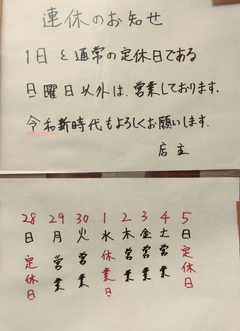 連休のお知せ
1日と通常の定休日である
日曜日以外は、営業しております。
令和新時代もよろしくお願いします。
店主
28 29 30 1 2 3 4 5
日 月 火 水 木 金 土 日
定休日 営業 営業 休業日 営業 営業 営業 定休日